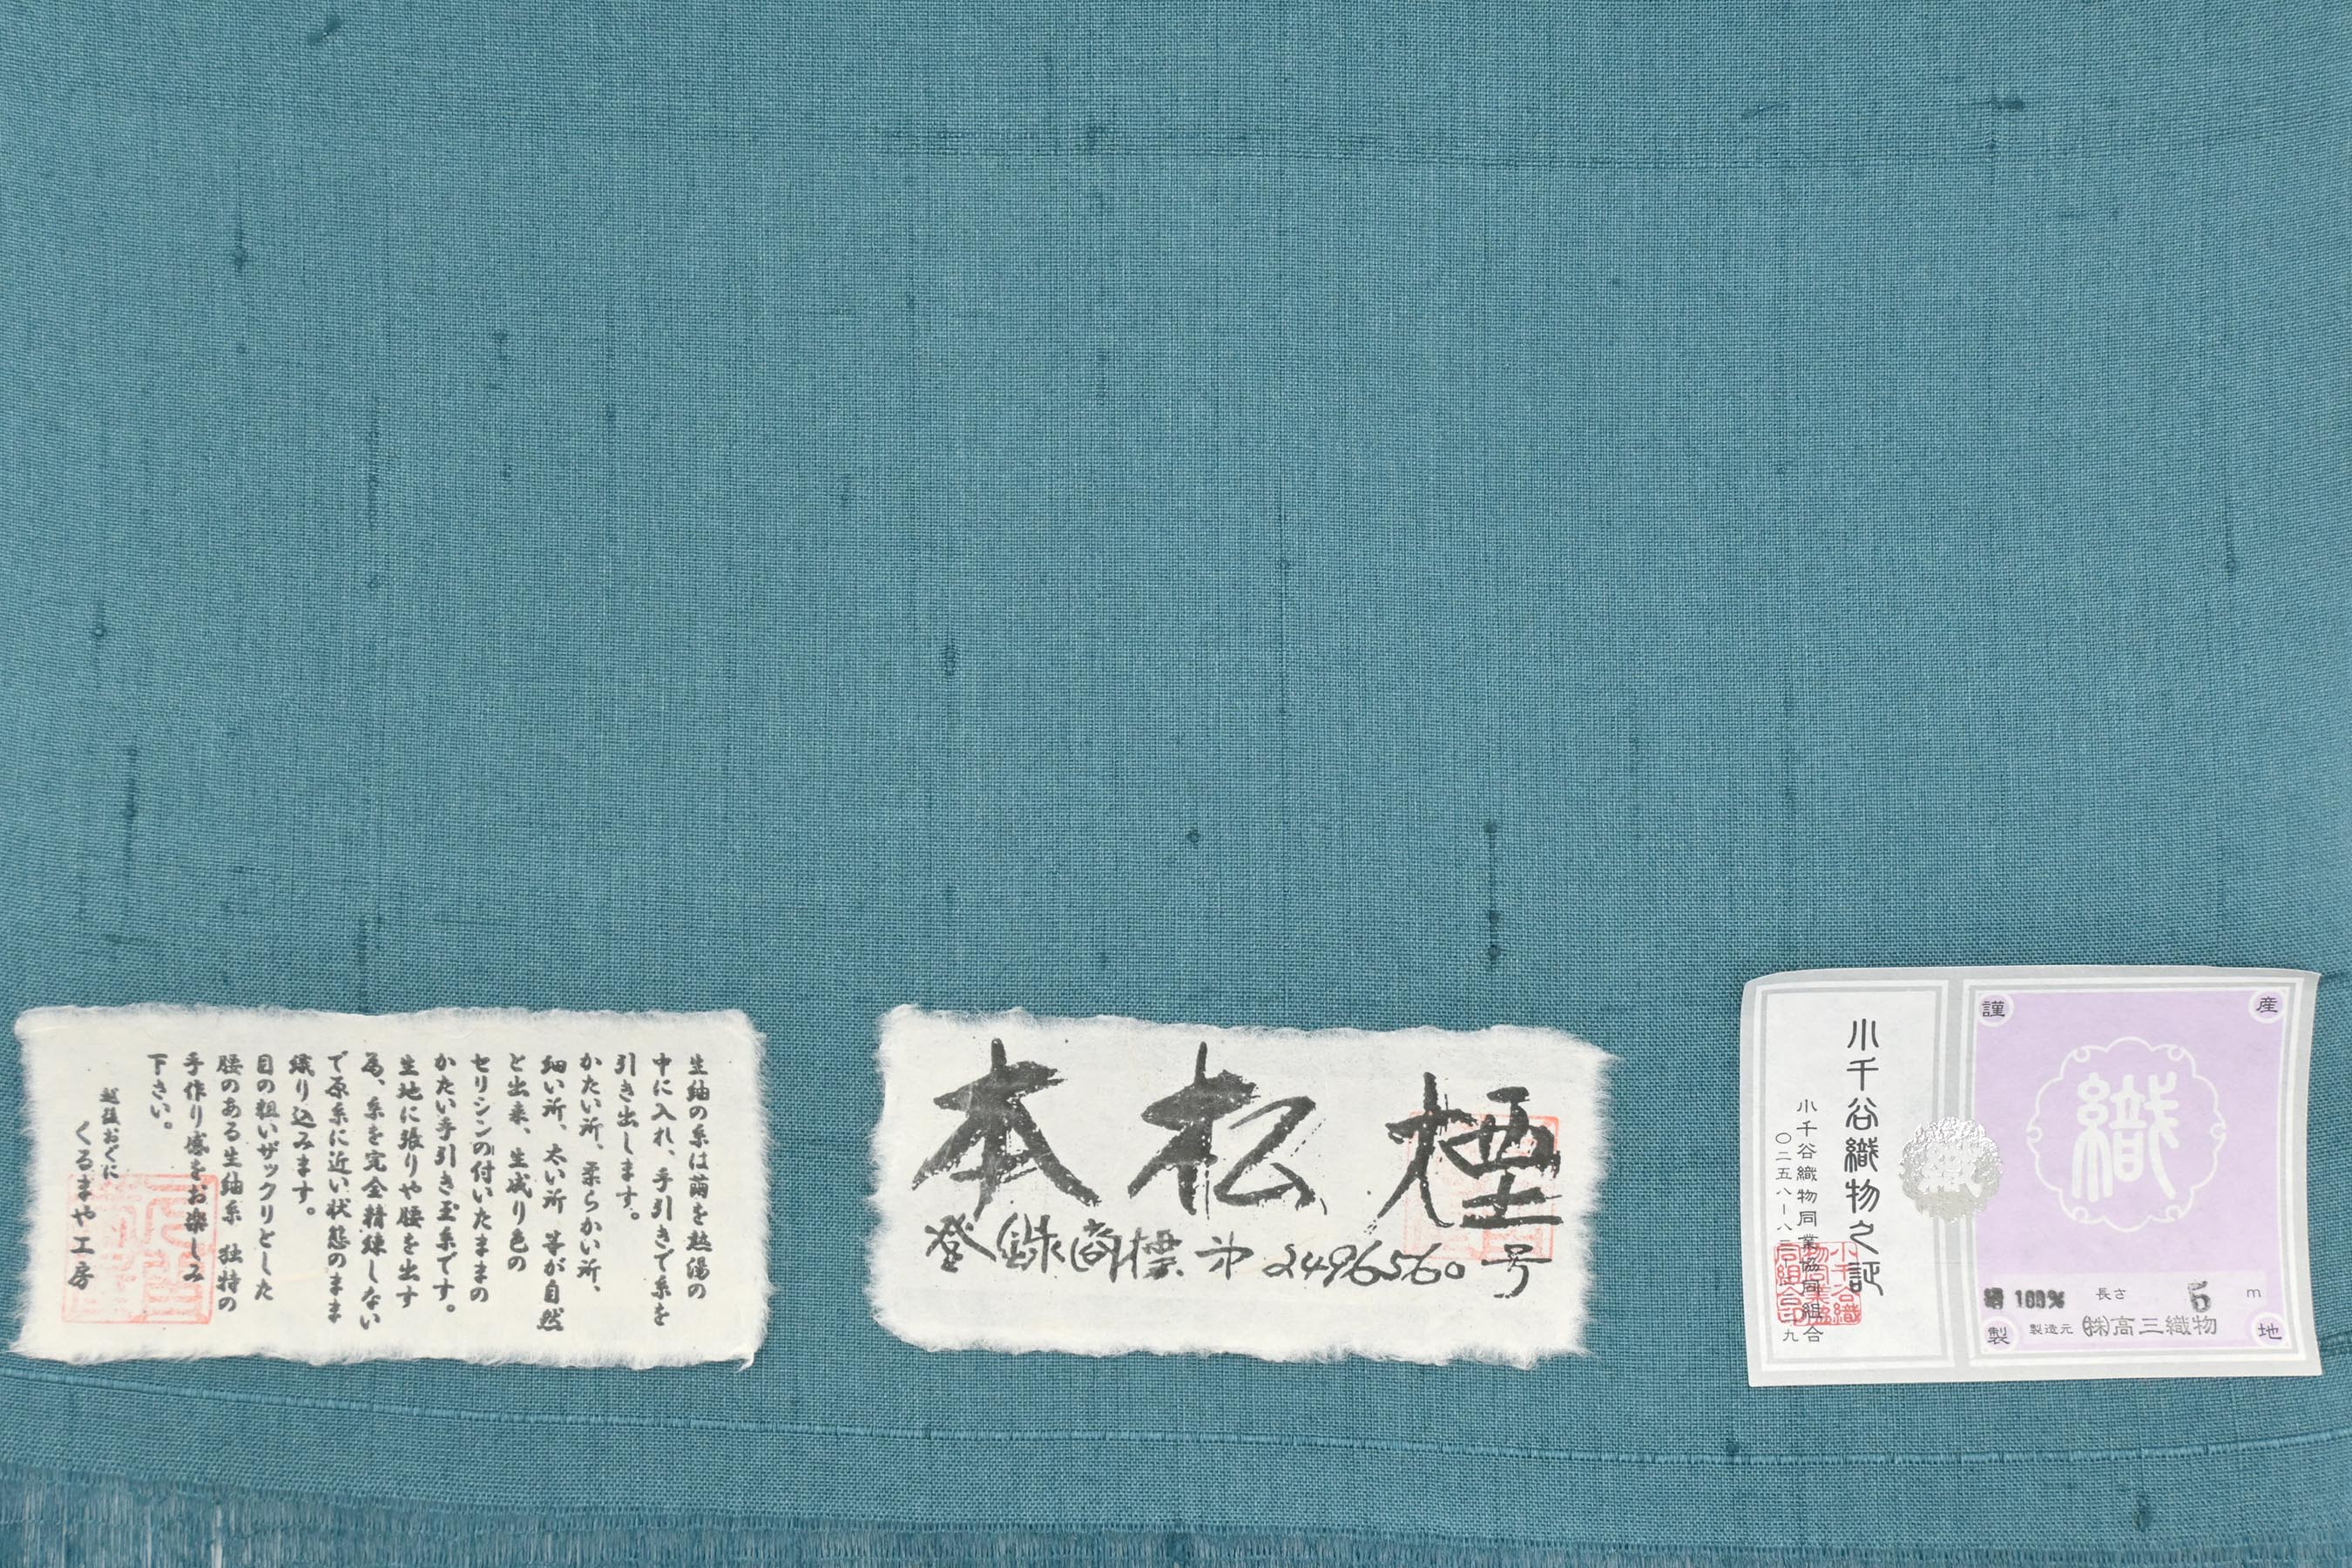 生紬の糸は繭を熱湯の
中に入れ、手引きで糸を
引き出します。
かたい所、柔らかい所、
細い所、太い所 等が自然
と出来、生成り色の
セリシンの付いたままの
かたい手引き玉糸です。
生地に張りや腰を出す
為、糸を完全精練しない
で原糸に近い状態のまま
織り込みます。
目の粗いザックリとした
腰のある生紬糸 独特の
手作り感をお楽しみ
下さい。
越後おぐに
くるまや工房
本松煙
登録商標 第2496560号
小千谷織物之証
小千谷織物同業協同組合
織
謹
産
織
絹100% 長さ 5 m
製造元 ㈱高三織物
製
地